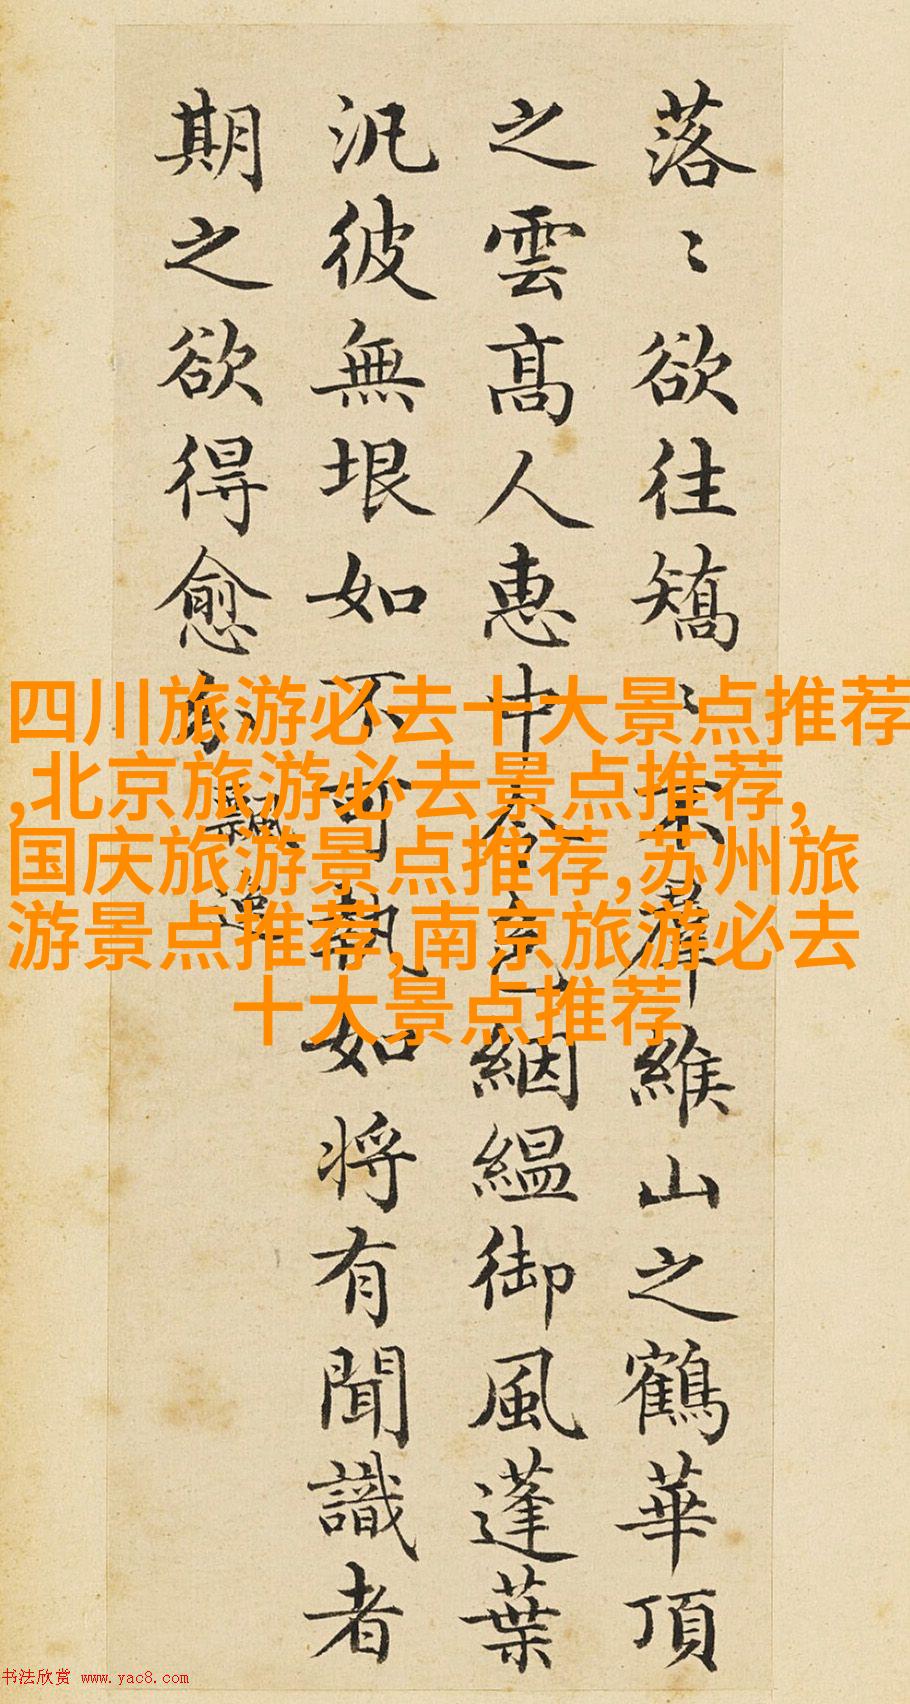 落〻欲往矯〻羣緱山之鶴華頂
之雲髙人惠中令色絪緼御風蓬葉
汎彼無垠如不可執如將有聞識者
期之欲得愈分
飄逸
四川旅游必去十大景点推荐
,北京旅游必去景点推荐,
国庆旅游景点推荐,苏州旅
游景点推荐,南京旅游必去
十大景点推荐
书法欣赏 www.yac8.com